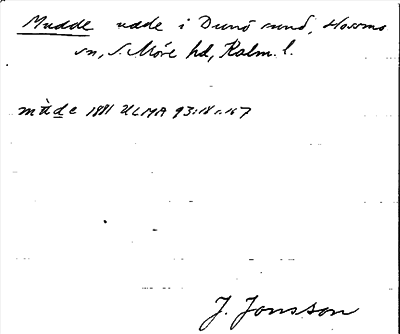 Mudde udde i Dunö sund, Hossmo
sn, S. Möre hd, Kalm. l.
mùde 1881 ULMA 93:18 s. 167
J. Jonsson